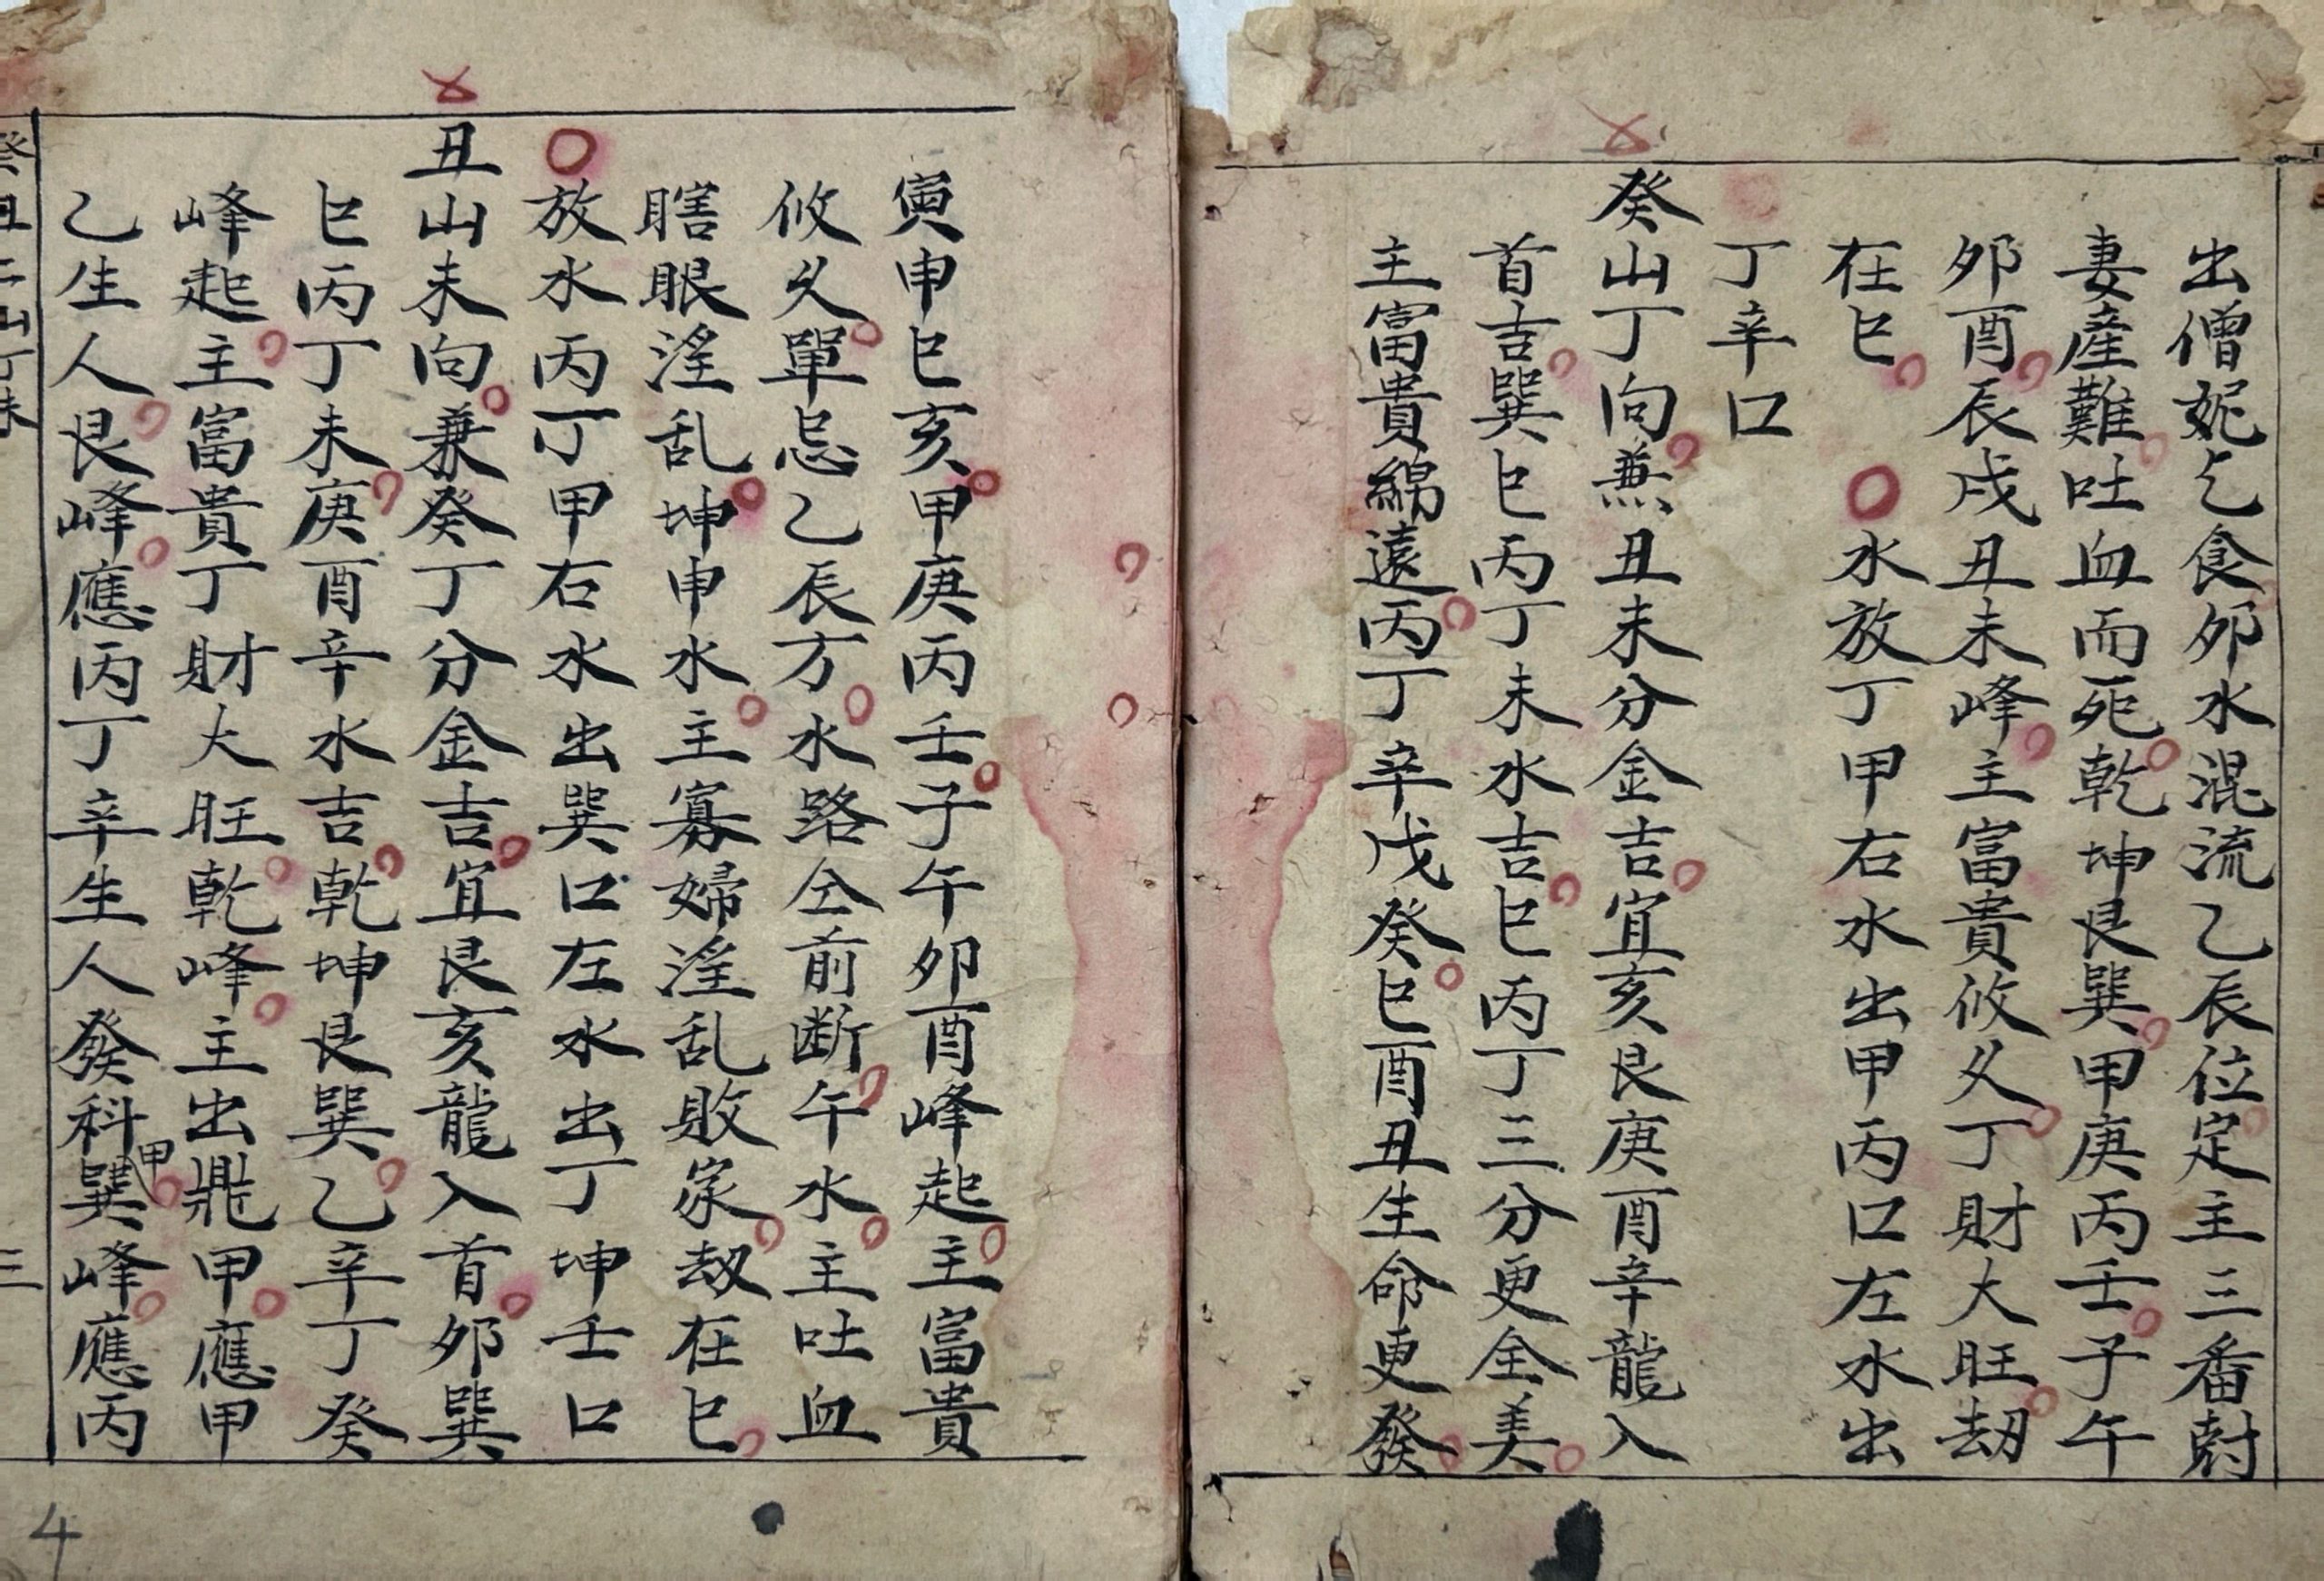 出僧妮乞食夘水混流乙辰位定主三番尅
妻產難吐血而死乾坤艮巽甲庚丙壬子午
夘酉辰戌丑未峰主富貴攸久丁財大旺刼
在巳○水放丁甲右水出甲丙口左水出
丁辛口
癸山丁向兼丑未分金吉宜亥艮庚酉辛龍入
首吉巽巳丙丁未水吉巳丙丁三分更全美
主富貴綿遠丙丁辛戊癸巳酉丑生命更發
寅申巳亥甲庚丙壬子午夘酉峰起主富貴
攸久單忌乙辰方水路仝前断午水主吐血
瞎眼淫乱坤申水主寡婦淫乱敗家刼在巳
○放水丙丁甲右水出巽口左水出丁坤壬口
丑山未向兼癸丁分金吉宜艮亥龍入首夘巽
巳丙丁未庚酉辛水吉乾坤艮巽乙辛丁癸
峰起主富貴丁財大旺乾峰主出鼎甲應甲
乙生人艮峰應丙丁辛生人發科甲巽峰應丙
癸丑二山丁未
三
4